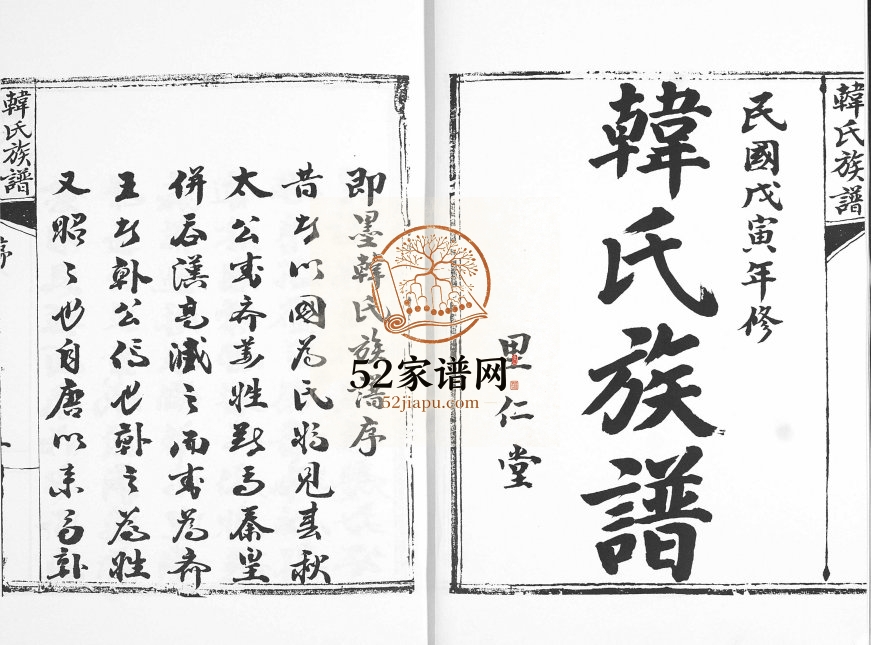 韓氏族譜
民國戊寅年修
韓氏族譜
里仁堂
即墨韓氏族譜序
昔者以國為氏 見春秋
太公封齊 姓 秦皇
併吞漢 滅之而封為齊
王者韓公信也韓之為姓
又昭〻也自唐以來 韓
韓氏族譜
序
52家谱网
52jiapu.com